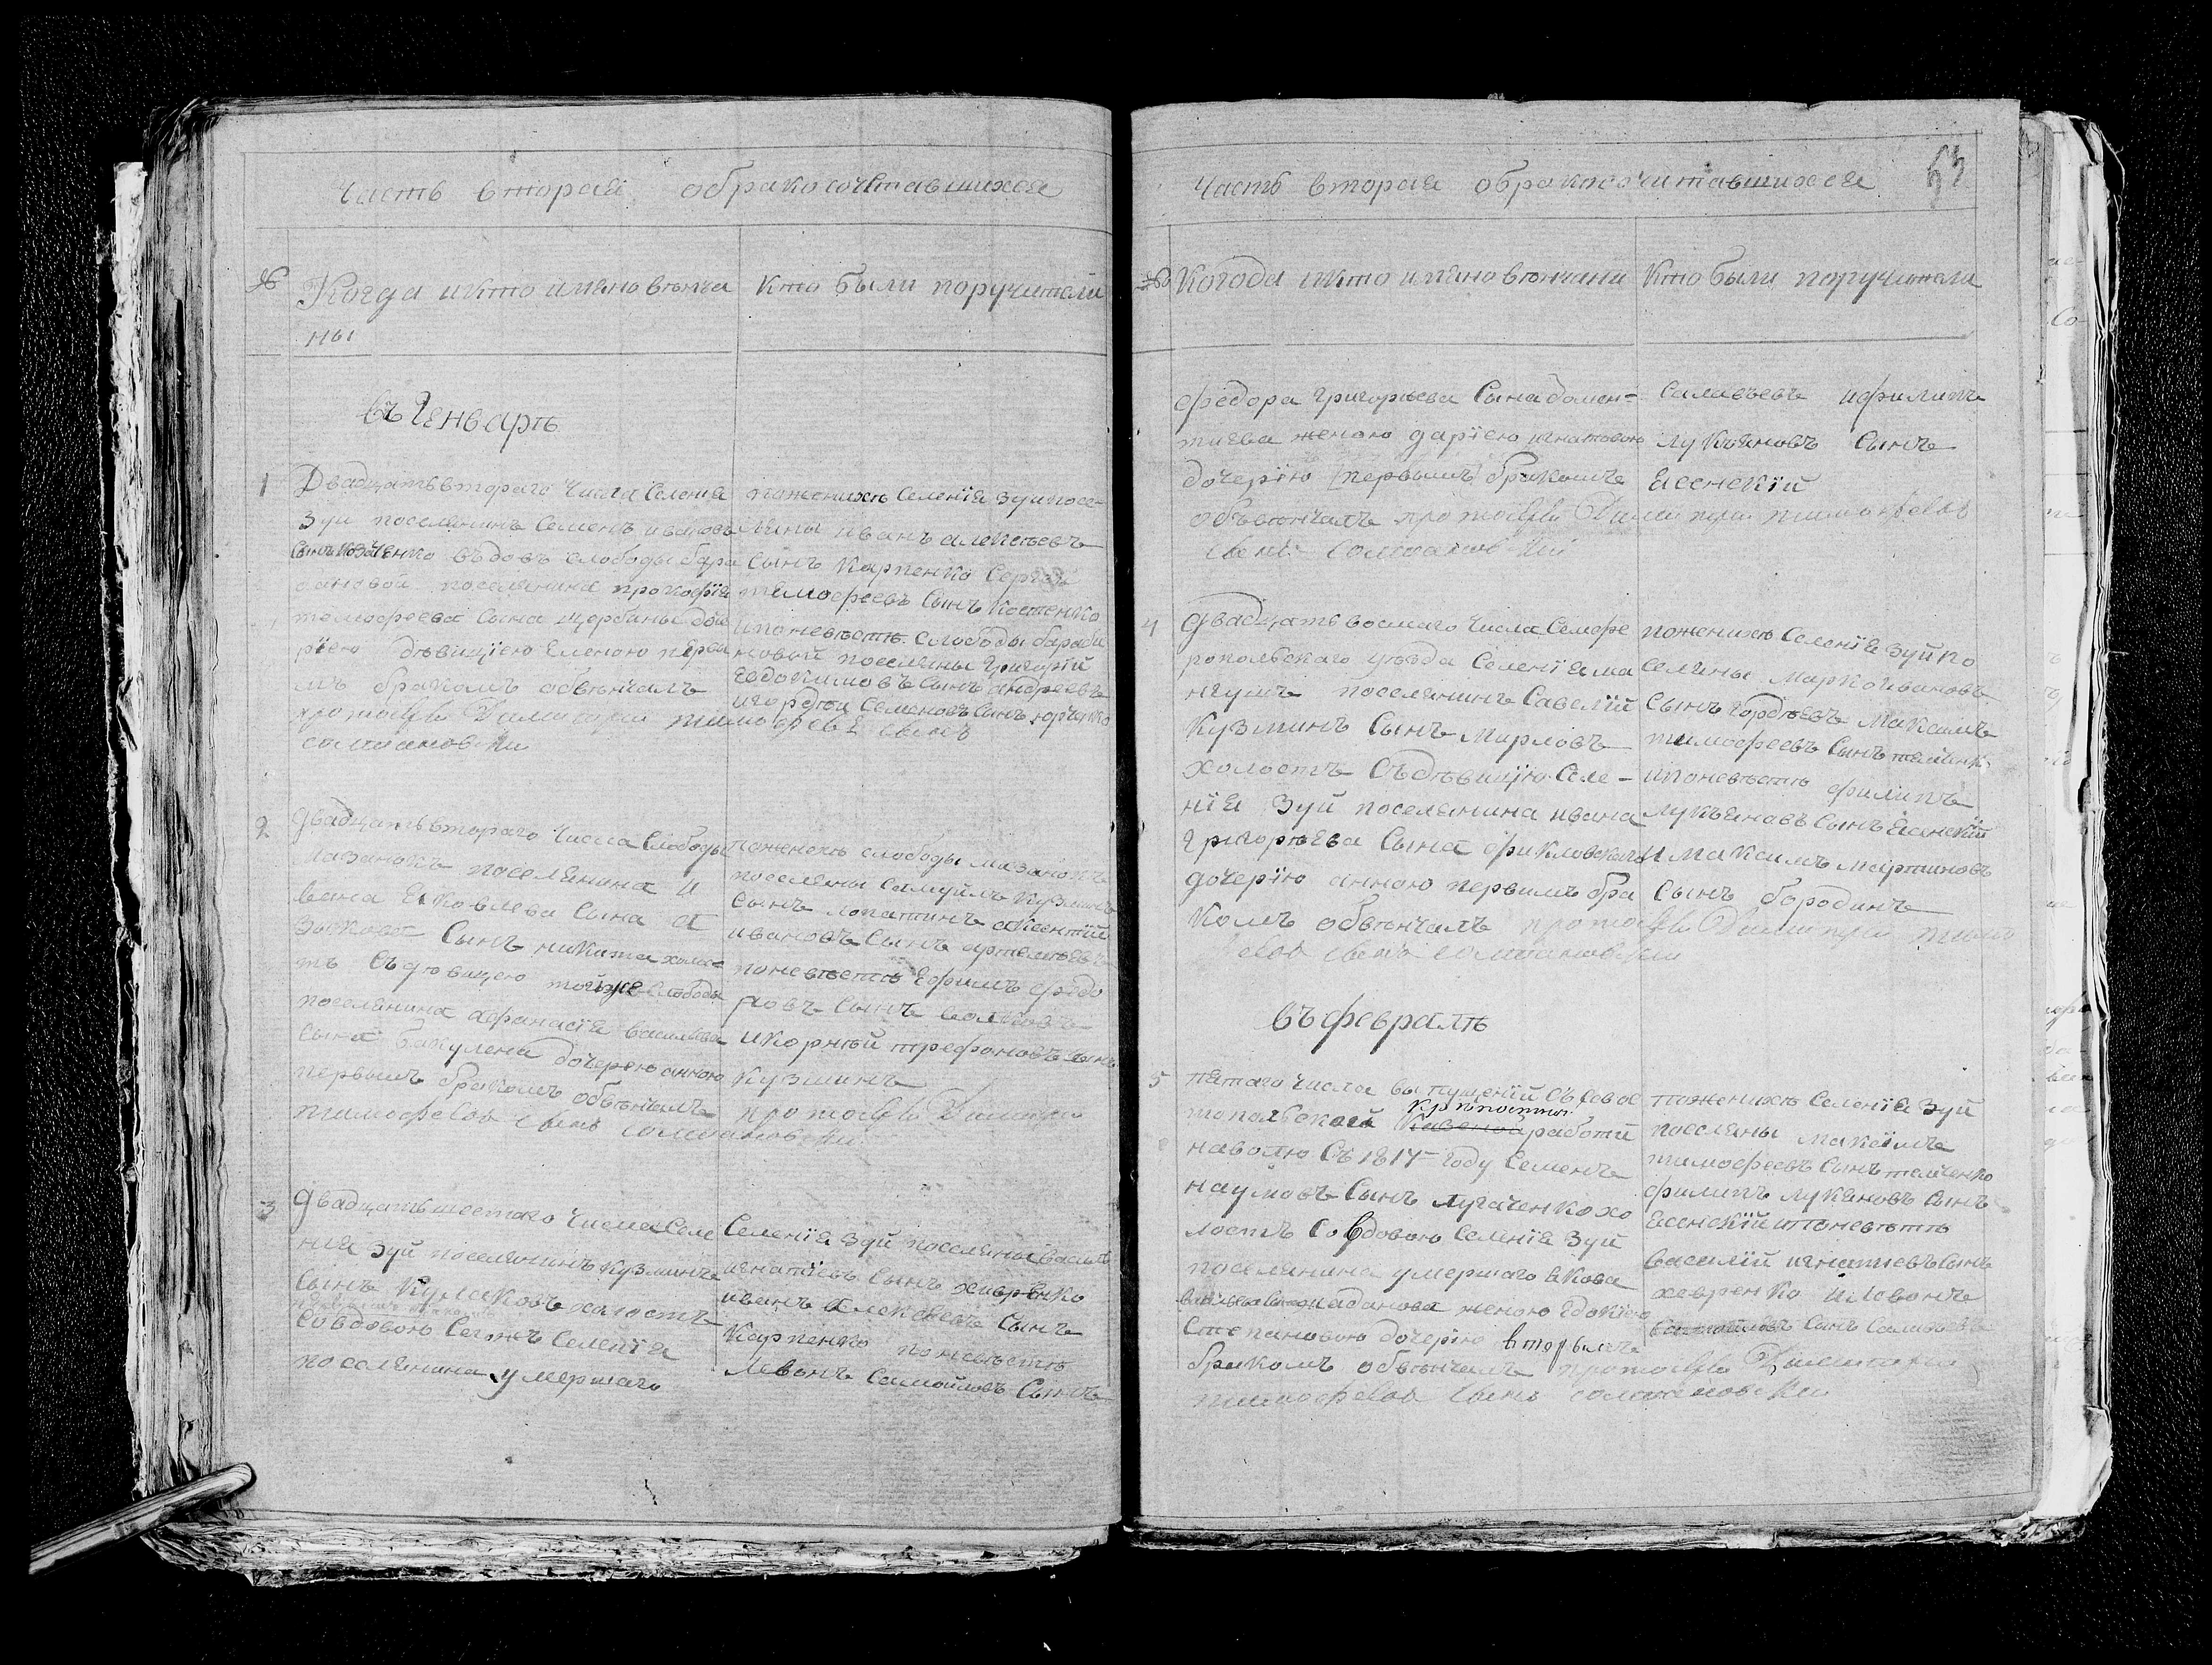 Часть вторая обракосочетавшихся
№ Когда икто имяно венча
ны
кто были поручители
въ Генваре
1
Двадцать втораго числа селения
Зуи поселянинъ Семенъ ивановъ
сынъ въдовъ слободы бара
новой поселянина прокофія
темофеева сына щербины доч
рїею девицїею Еленою первы
мъ бракомъ обвенчалъ
протоіерей Димитрий тимофеевъ сынъ
поженихе Селенїя Зуи посе
ляны иванъ алексеевъ
сынъ Карпенко Сергей
тимофеевъ сынъ Костенко
ипоневесте слободы барано
новой поселяны Григорїй
Евдокимовъ сынъ андреевъ
игордей Семеновъ сынъ юрченко
2
двадцать втораго числа слободы
мазанокъ поселянина и
вана Яковлева сына а
зыкова сынъ никита холос
тъ съдювицею тойже слободы
поселянина афанасїя васильева
сына бакулена дочерею анною
первымъ бракомъ обвенчалъ
протоіерей Димитрий
тимофеевъ сынъ
поженихе слободы мазанокъ
поселяны Самуйлъ Кузминъ
сынъ лопатинъ авксентїй
ивановъ сынъ артемьевъ
поневесте Ефимъ федо
ровъ сынъ волковъ
икорней трефоновъ сынъ
кузминъ
3
двадцать шестаго числа Селе
ния Зуи поселянинъ Кузминъ
сынъ Кулаковъ холостъ
совдовою Сегожъ Селенїя
поселянина умершаго
Селенїя Зуи поселяны василей
игнатїевъ сынъ хиврЕнко
иванъ алексеевъ сынъ
Карпенко поневесте
Левонъ Самойловъ сынъ
Часть вторая обракосочитавшихся
№ Когода икто имяно венчани
кто были поручители
федора Григорьева Сына домен=
тиева женою дарїею игнатовою
дочерїю первымъ бракомъ
обвенчалъ протоіерей Димитрий тимофеевъ
сынъ
Салавьевъ ифилипъ
лукьяновъ сынъ
Ясенскїй
4
двадцать восмаго числа Семфе
ропольскаго уезда Селенїя ма
нгушъ поселянинъ Савелїй
Кузминъ Сынъ Марловъ
холостъ Съдевицїю Селе-
нїя Зуй поселянина ивана
григорьева Сына
дочерїю анною первимъ бра
комъ обвенчалъ протоіерей Димитрий тимо
феевъ сынъ
поженихе Селенїя Зуй по
селяны Марко Ивановъ
сынъ гордеевъ Максимъ
тимофеевъ сынъ
ипоневесте филипъ
лукьяновъ сынъ Ясенскїй
и максимъ мартиновъ
сынъ бородинъ
въ феврале
5
пятаго числа выпущенїй съ Севас
топольской крепостной работи
наволю съ 1817 году Семенъ
наумовъ сынъ лугаченко хо
лостъ совдовою Селенїя Зуй
поселянина умершаго Якова
жаданова женою Едокїею
степановою дочерїю вторымъ
бракомъ обвенчалъ протоіерей Димитрий
тимофеевъ сынъ
поженихе Селенїя Зуй
поселяны максїмъ
тимофеевъ сынъ
филипъ лукяновъ сынъ
Ясенскїй ипоневесте
василїй игнатиевъ сынъ
хевренко и Левонъ
Самойловъ сынъ Салавьевъ